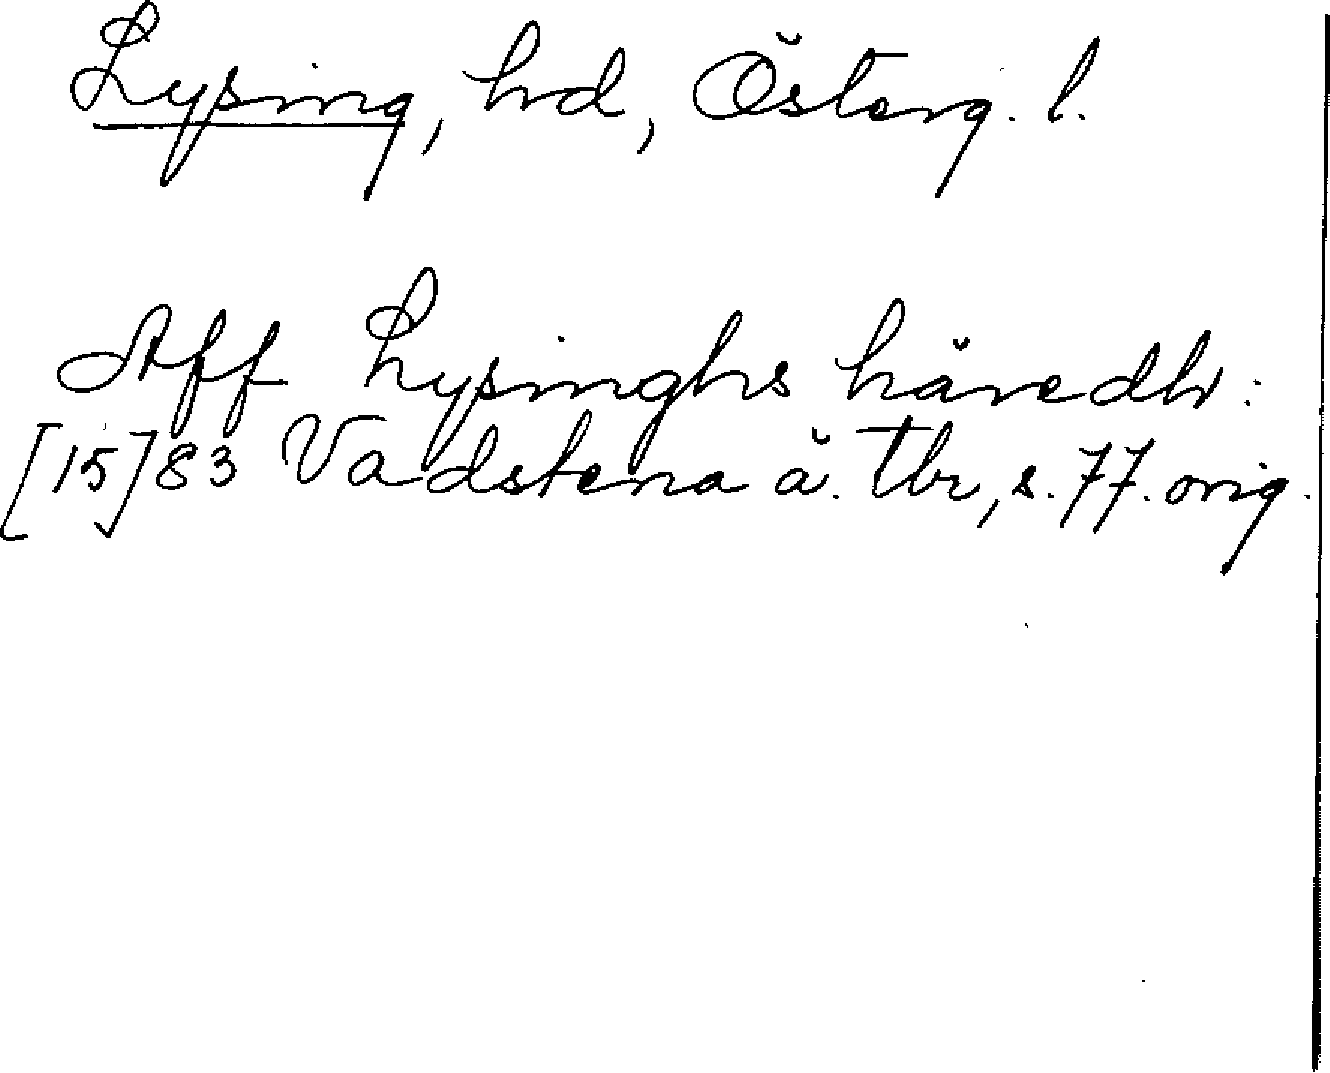 Lysing, hd, Österg. l.
Aff Lysinghs häredh:
[15]83 Vadstena ä. tbr, s. 77. orig.